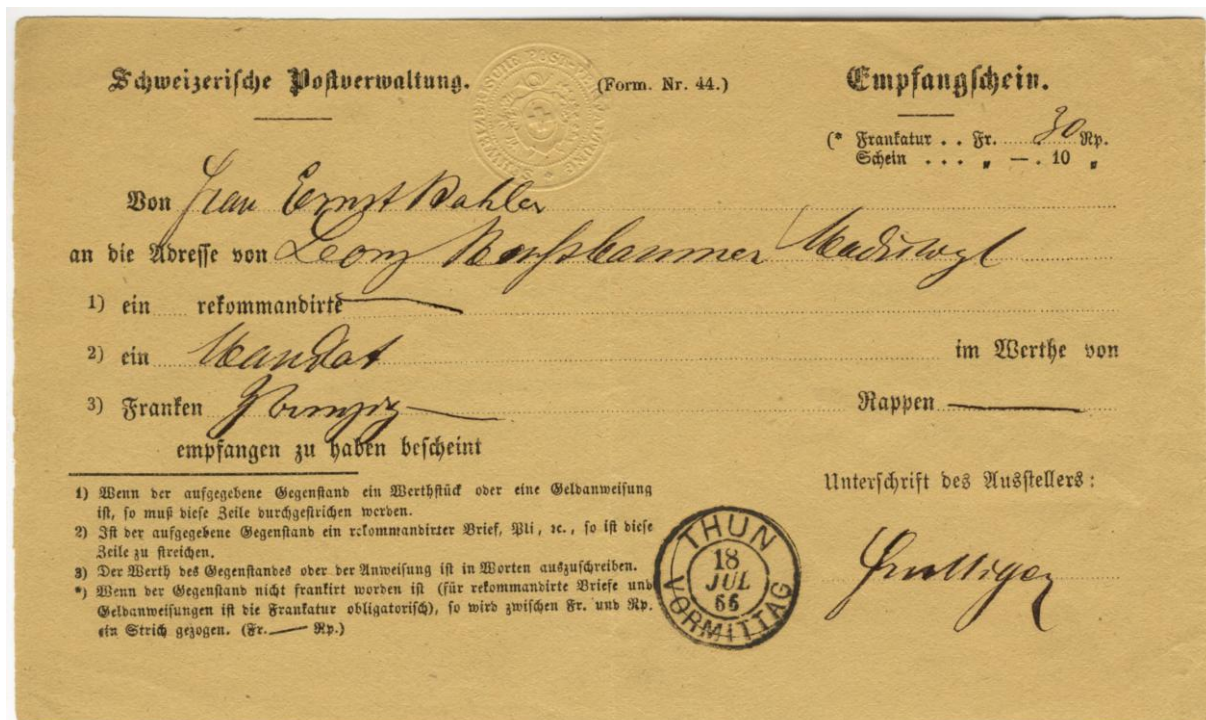 Schweizerische Postverwaltung.
(Form. Nr. 44.)
Empfangschein.
(* Frankatur . . Fr. 30 Rp.
Schein . . . „ — . 10 „
Von Frau Ernst Bahler
an die Adresse von
1) ein rekommandirte
2) ein Mandat im Werthe von
3) Franken Rappen
empfangen zu haben bescheint
1) Wenn der aufgegebene Gegenstand ein Werthstück oder eine Geldanweisung
ist, so muß diese Zeile durchgestrichen werden.
2) Ist der aufgegebene Gegenstand ein rekommandirter Brief, Pli, ꝛc., so ist diese
Zeile zu streichen.
3) Der Werth des Gegenstandes oder der Anweisung ist in Worten auszuschreiben.
*) Wenn der Gegenstand nicht frankirt worden ist (für rekommandirte Briefe und
Geldanweisungen ist die Frankatur obligatorisch), so wird zwischen Fr. und Rp.
ein Strich gezogen. (Fr. —— Rp.)
Unterschrift des Ausstellers:
THUN
18
JUL
66
VORMITTAG